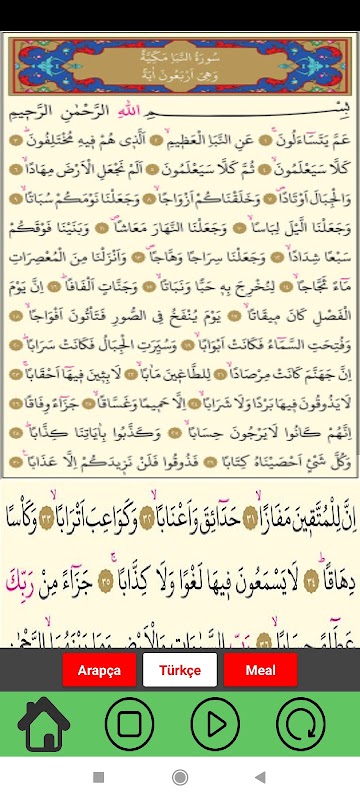 سُورَةُ النَّبَأِ مَكِّيَّةٌ
وَهِيَ اَرْبَعُونَ اٰيَةً
بِسْــــمِ اللهِ الرَّحْمٰنِ الرَّحِيمِ
عَمَّ يَتَسَٓاءَلُونَۚ ﴿١﴾ عَنِ النَّبَأِ الْعَظِيمِۙ ﴿٢﴾ اَلَّذِى هُمْ فِيهِ مُخْتَلِفُونَۜ ﴿٣﴾
كَلَّا سَيَعْلَمُونَۙ ﴿٤﴾ ثُمَّ كَلَّا سَيَعْلَمُونَ ﴿٥﴾ اَلَمْ نَجْعَلِ الْاَرْضَ مِهَادًاۙ ﴿٦﴾
وَالْجِبَالَ اَوْتَادًاۖ ﴿٧﴾ وَخَلَقْنَاكُمْ اَزْوَاجًاۙ ﴿٨﴾ وَجَعَلْنَا نَوْمَكُمْ سُبَاتًاۙ ﴿٩﴾
وَجَعَلْنَا الَّيْلَ لِبَاسًاۙ ﴿١٠﴾ وَجَعَلْنَا النَّهَارَ مَعَاشًاۖ ﴿١١﴾ وَبَنَيْنَا فَوْقَكُمْ
سَبْعًا شِدَادًاۙ ﴿١٢﴾ وَجَعَلْنَا سِرَاجًا وَهَّاجًاۖ ﴿١٣﴾ وَاَنْزَلْنَا مِنَ الْمُعْصِرَاتِ
مَٓاءً ثَجَّاجًاۙ ﴿١٤﴾ لِنُخْرِجَ بِهِ حَبًّا وَنَبَاتًاۙ ﴿١٥﴾ وَجَنَّاتٍ اَلْفَافًاۜ ﴿١٦﴾ اِنَّ يَوْمَ
الْفَصْلِ كَانَ مِيقَاتًاۙ ﴿١٧﴾ يَوْمَ يُنْفَخُ فِى الصُّورِ فَتَأْتُونَ اَفْوَاجًاۙ ﴿١٨﴾
وَفُتِحَتِ السَّمَٓاءُ فَكَانَتْ اَبْوَابًاۙ ﴿١٩﴾ وَسُيِّرَتِ الْجِبَالُ فَكَانَتْ سَرَابًاۜ ﴿٢٠﴾
اِنَّ جَهَنَّمَ كَانَتْ مِرْصَادًاۙ ﴿٢١﴾ لِلطَّاغِينَ مَاٰبًاۙ ﴿٢٢﴾ لَابِثِينَ فِيهَٓا اَحْقَابًاۚ ﴿٢٣﴾
لَا يَذُوقُونَ فِيهَا بَرْدًا وَلَا شَرَابًاۙ ﴿٢٤﴾ اِلَّا حَمِيمًا وَغَسَّاقًاۙ ﴿٢٥﴾ جَزَٓاءً وِفَاقًاۜ ﴿٢٦﴾
اِنَّهُمْ كَانُوا لَا يَرْجُونَ حِسَابًاۙ ﴿٢٧﴾ وَكَذَّبُوا بِاٰيَاتِنَا كِذَّابًاۜ ﴿٢٨﴾
وَكُلَّ شَيْءٍ اَحْصَيْنَاهُ كِتَابًاۙ ﴿٢٩﴾ فَذُوقُوا فَلَنْ نَزِيدَكُمْ اِلَّا عَذَابًا۟ ﴿٣٠﴾
اِنَّ لِلْمُتَّقِينَ مَفَازًاۙ ﴿٣١﴾ حَدَٓائِقَ وَاَعْنَابًاۙ ﴿٣٢﴾ وَكَوَاعِبَ اَتْرَابًاۙ ﴿٣٣﴾ وَكَأْسًا
دِهَاقًاۜ ﴿٣٤﴾ لَا يَسْمَعُونَ فِيهَا لَغْوًا وَلَا كِذَّابًاۚ ﴿٣٥﴾ جَزَٓاءً مِنْ رَبِّكَ
عَطَٓاءً حِسَابًاۙ ﴿٣٦﴾ رَبِّ السَّمٰوَاتِ وَالْاَرْضِ وَمَا بَيْنَهُمَا الرَّحْمٰنِ
Arapça
Türkçe
Meal